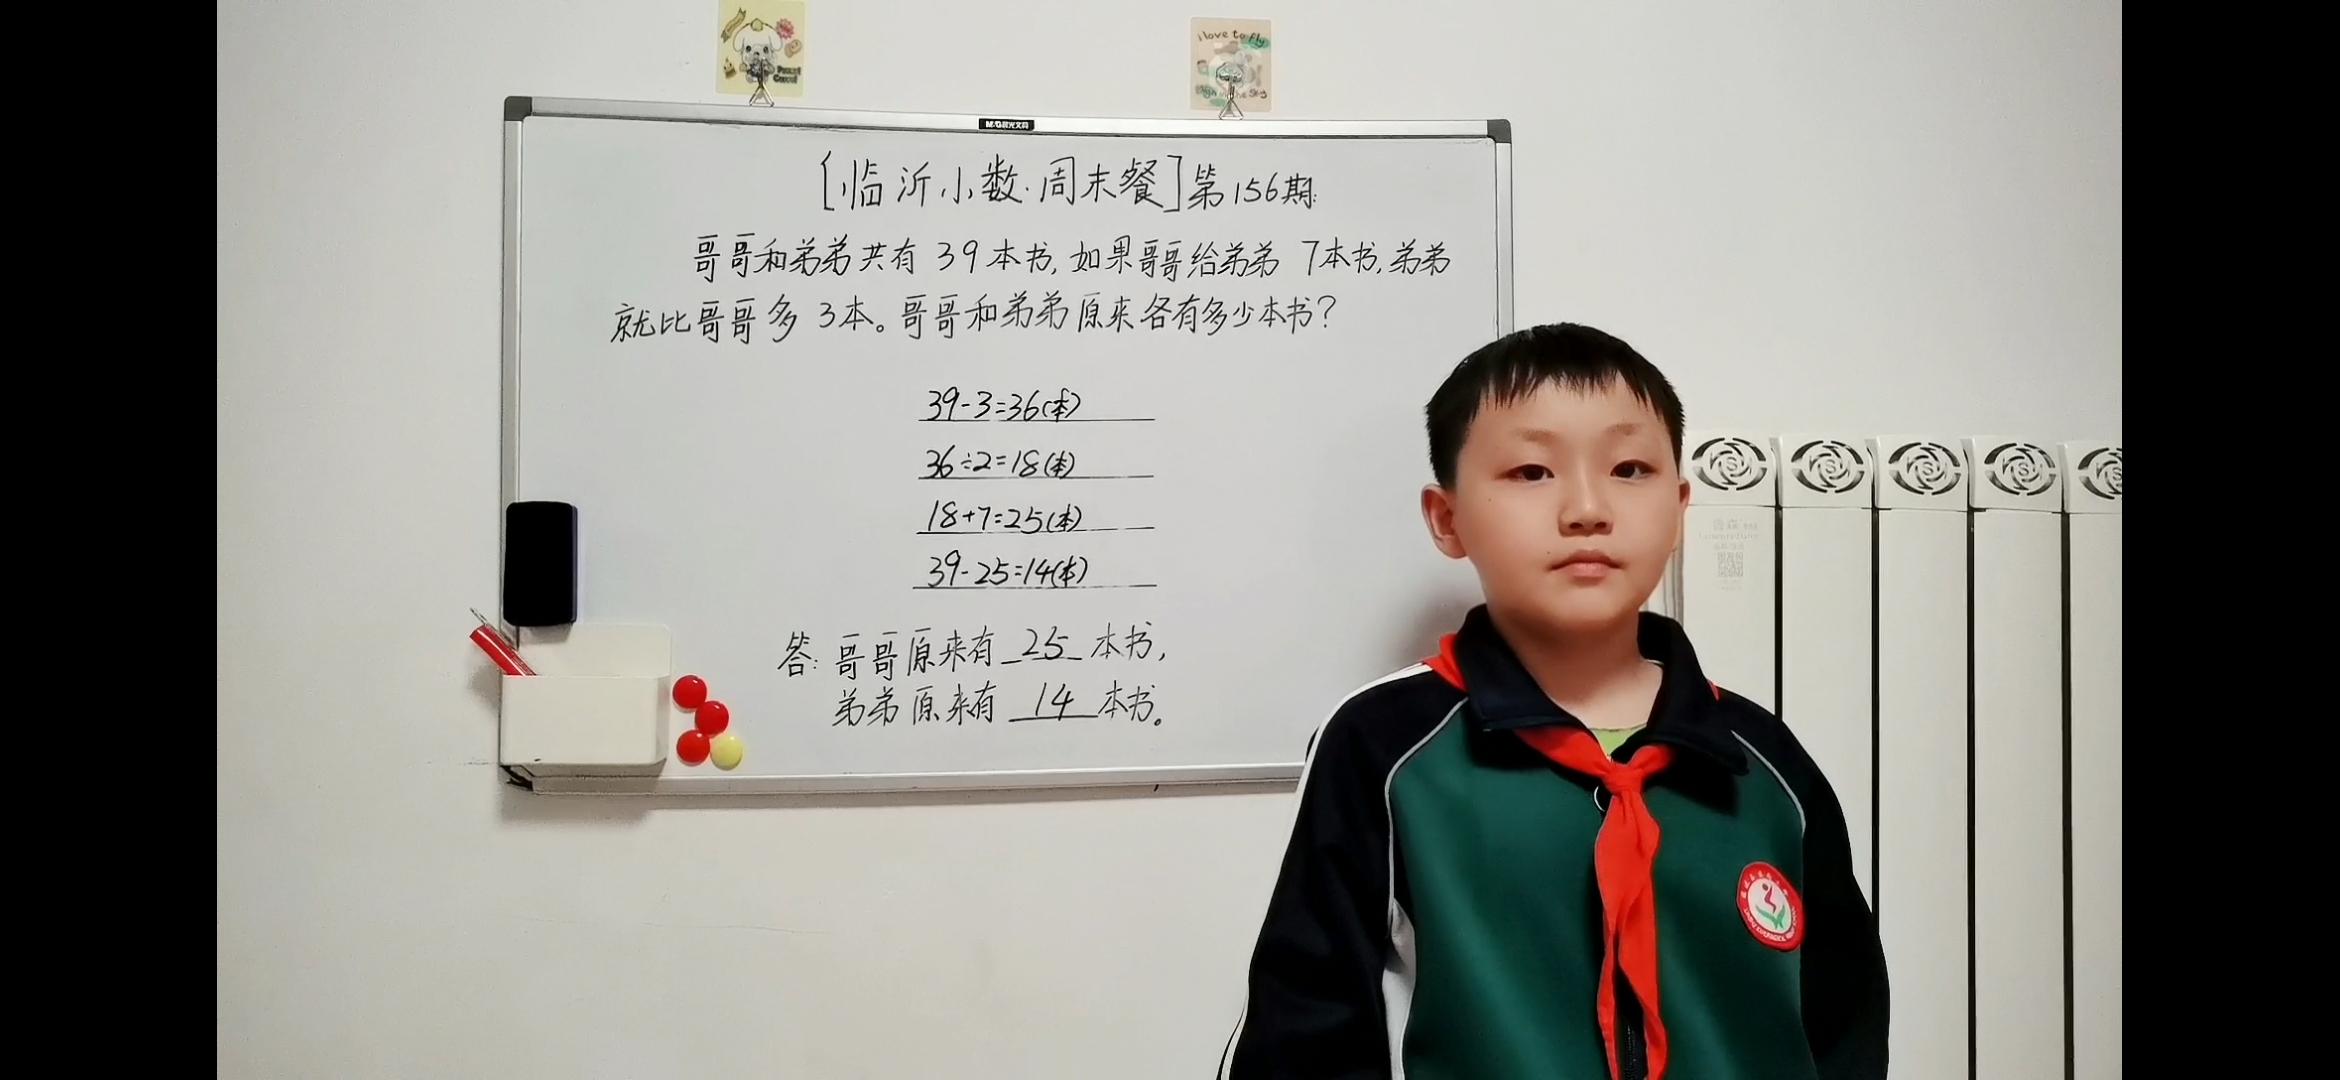 i love to fly
M&G晨光文具
[临沂小数·周末餐]第156期:
哥哥和弟弟共有 39本书,如果哥哥给弟弟 7本书,弟弟
就比哥哥多 3本。哥哥和弟弟原来各有多少本书?
39-3=36(本)
36÷2=18(本)
18+7=25(本)
39-25=14(本)
答:哥哥原来有 25 本书,
弟弟原来有 14 本书。